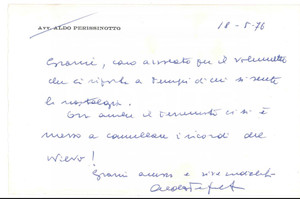 Avv. ALDO PERISSINOTTO
18-5-76
Grazie, caro avvocato per il volumetto
che ci riporta a tempi di cui si sente
la nostalgia.
Ora anche il terremoto ci si è
messo a cancellare i ricordi del
vivere!
Grazie ancora e